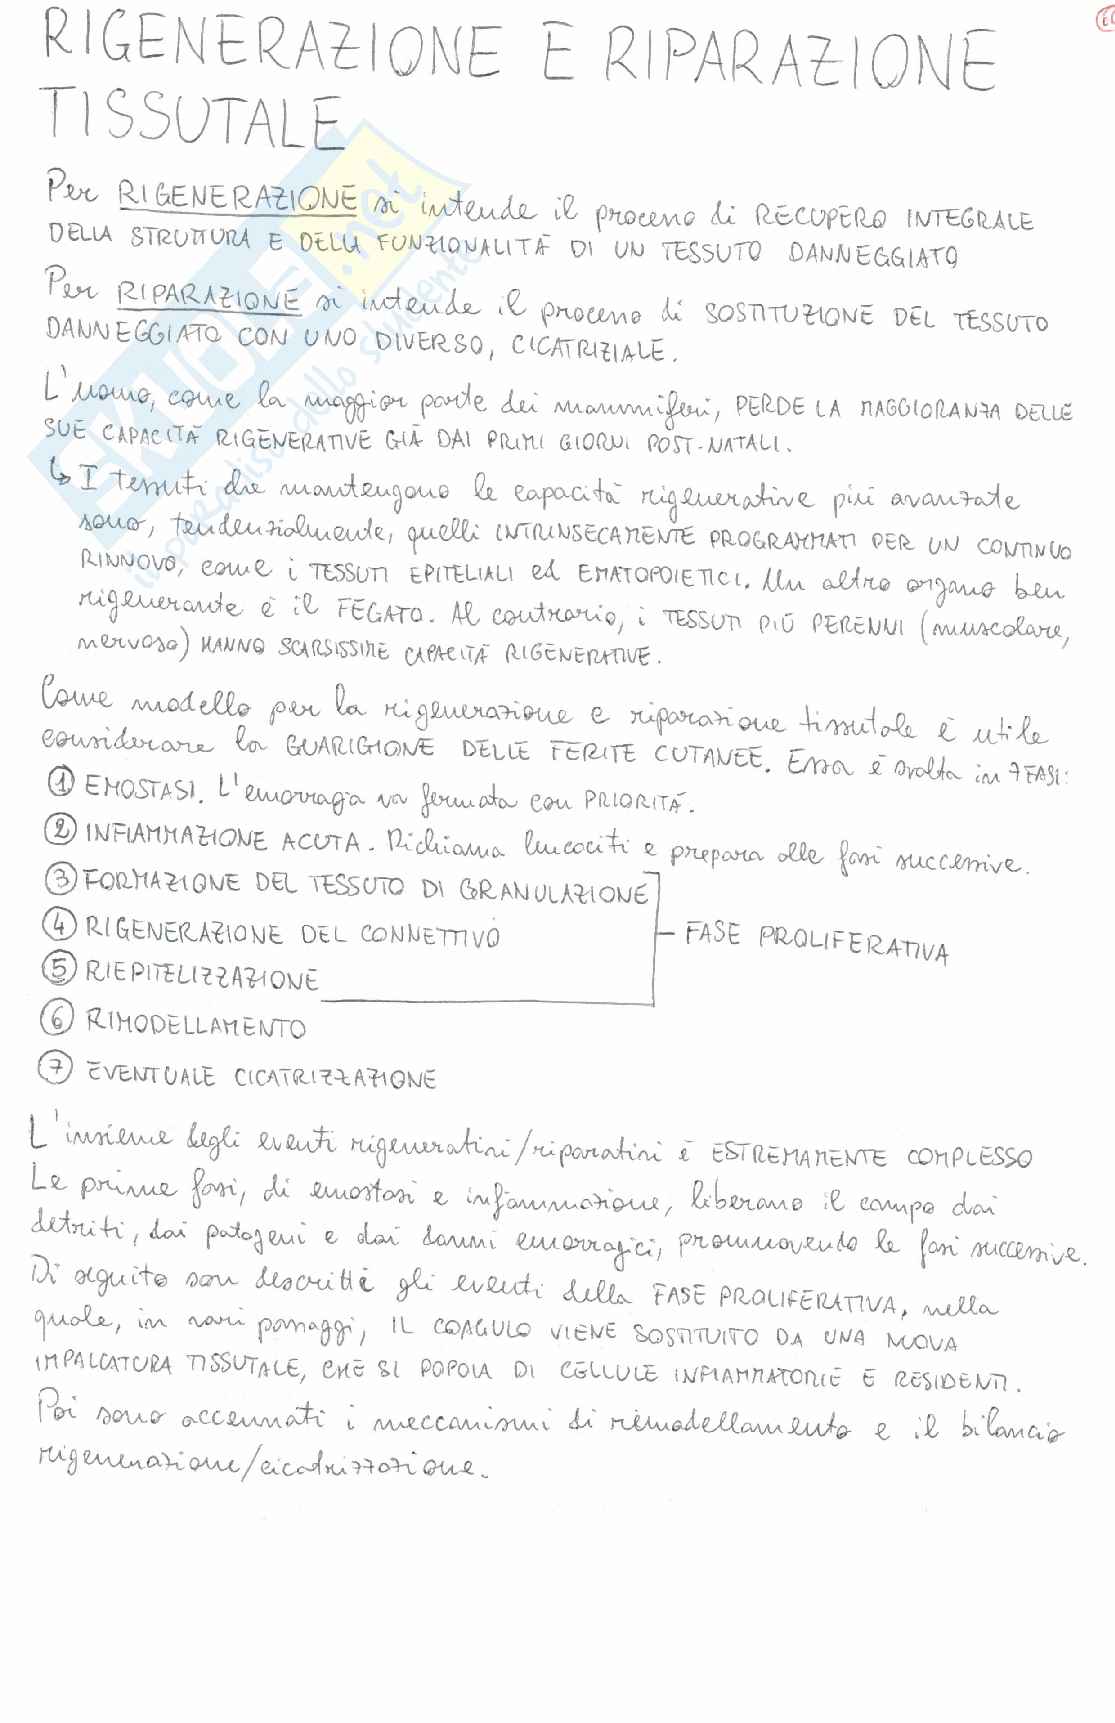 RIGENERAZIONE E RIPARAZIONE
TISSUTALE
Per RIGENERAZIONE si intende il processo di RECUPERO INTEGRALE
DELLA STRUTTURA E DELLA FUNZIONALITÀ DI UN TESSUTO DANNEGGIATO
Per RIPARAZIONE si intende il processo di SOSTITUZIONE DEL TESSUTO
DANNEGGIATO CON UNO DIVERSO, CICATRIZIALE.
L'uomo, come la maggior parte dei mammiferi, PERDE LA MAGGIORANZA DELLE
SUE CAPACITÀ RIGENERATIVE GIÀ DAI PRIMI GIORNI POST-NATALI.
↳ I tessuti che mantengono le capacità rigenerative più avanzate
sono, tendenzialmente, quelli INTRINSECAMENTE PROGRAMMATI PER UN CONTINUO
RINNOVO, come i TESSUTI EPITELIALI ed EMATOPOIETICI. Un altro organo ben
rigenerante è il FEGATO. Al contrario, i TESSUTI PIÙ PERENNI (muscolare,
nervoso) HANNO SCARSISSIME CAPACITÀ RIGENERATIVE.
Come modello per la rigenerazione e riparazione tissutale è utile
considerare la GUARIGIONE DELLE FERITE CUTANEE. Essa è svolta in 7 FASI:
① EMOSTASI. L'emorragia va fermata con PRIORITÀ.
② INFIAMMAZIONE ACUTA. Richiama leucociti e prepara alle fasi successive.
③ FORMAZIONE DEL TESSUTO DI GRANULAZIONE
④ RIGENERAZIONE DEL CONNETTIVO
FASE PROLIFERATIVA
⑤ RIEPITELIZZAZIONE
⑥ RIMODELLAMENTO
⑦ EVENTUALE CICATRIZZAZIONE
L'insieme degli eventi rigenerativi/riparativi è ESTREMAMENTE COMPLESSO
Le prime fasi, di emostasi e infiammazione, liberano il campo dai
detriti, dai patogeni e dai danni emorragici, promuovendo le fasi successive.
Di seguito son descritti gli eventi della FASE PROLIFERATIVA, nella
quale, in vari passaggi, IL COAGULO VIENE SOSTITUITO DA UNA NUOVA
IMPALCATURA TISSUTALE, CHE SI POPOLA DI CELLULE INFIAMMATORIE E RESIDENTI.
Poi sono accennati i meccanismi di rimodellamento e il bilancio
rigenerazione/cicatrizzazione.
SKUOLA.net
il paradiso dello studente